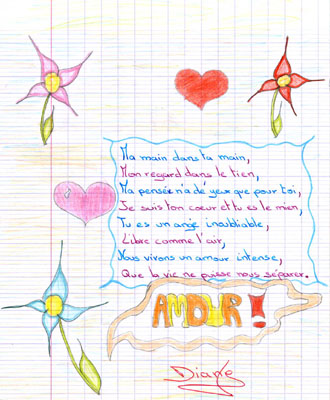 Ma main dans ta main,
Mon regard dans le tien,
Ma pensée n'a de yeux que pour toi,
Je suis ton coeur et tu es le mien,
Tu es un ange inoubliable,
Libre comme l'air,
Nous vivons un amour intense,
Que la vie ne puisse nous séparer.
AMOUR !
Diane